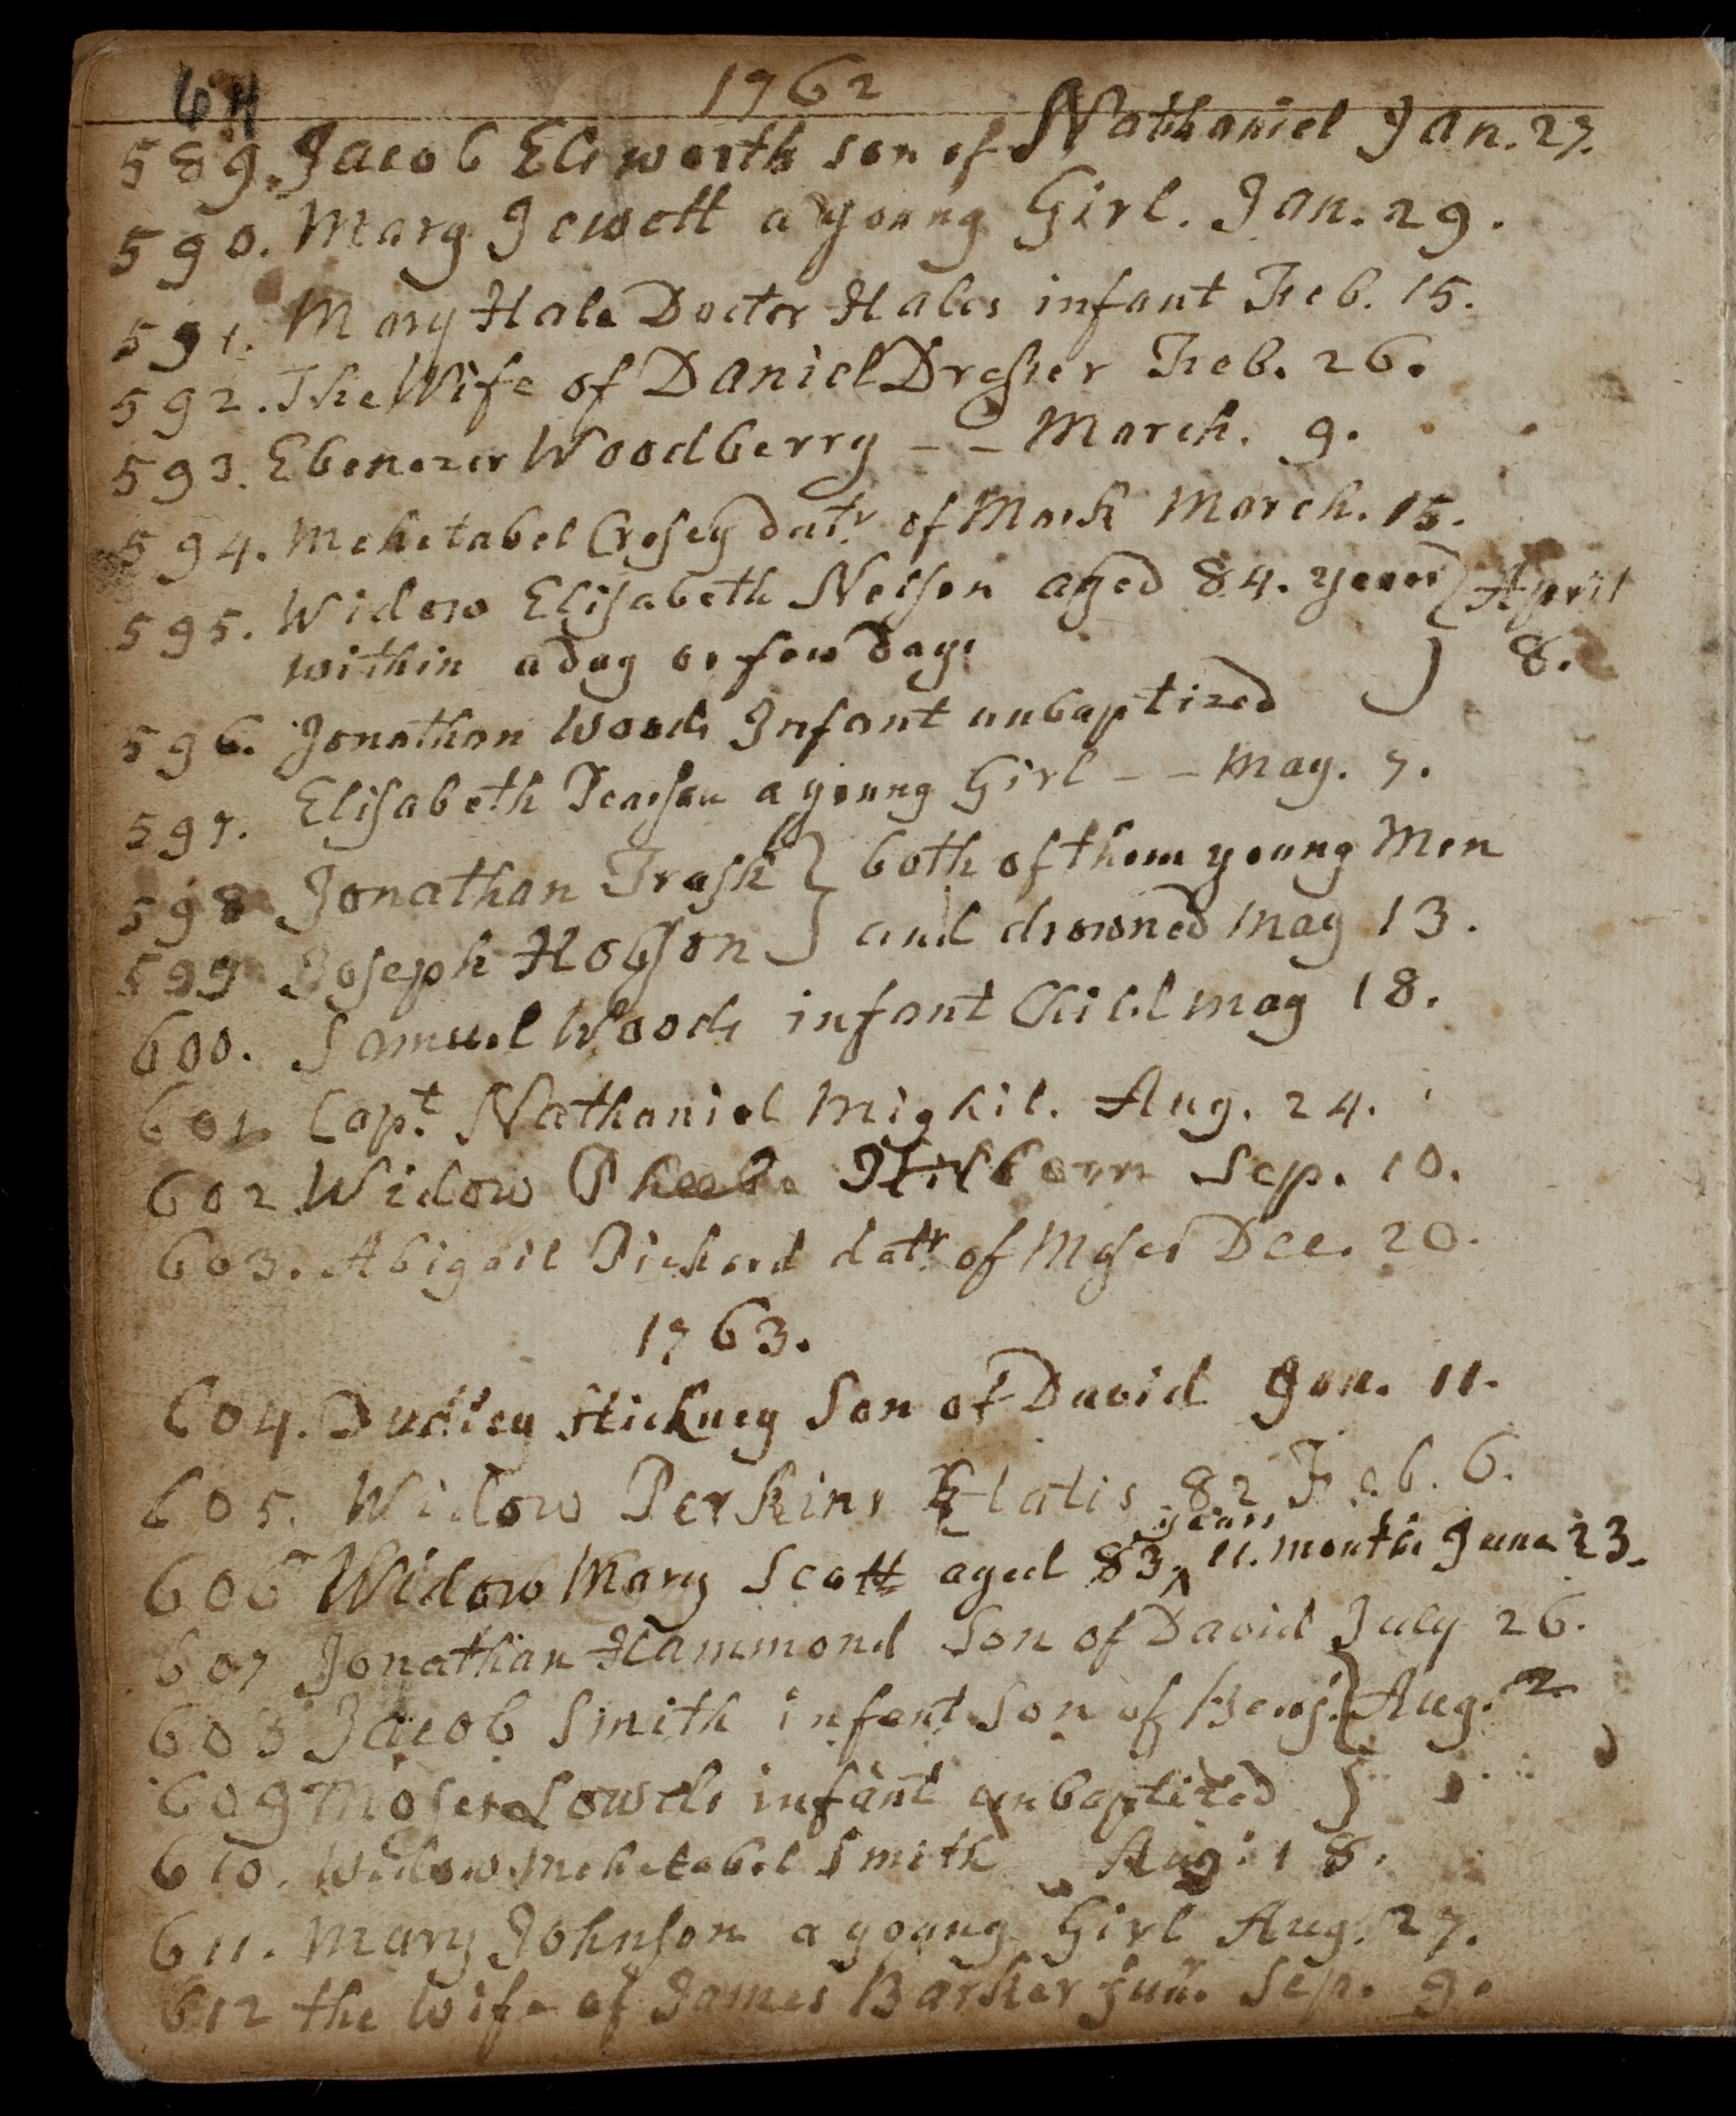 64
1762
589. Jacob Elsworth son of Nathaniel Jan. 27.
590. Mary Jewett a young Girl. Jan. 29.
591. Mary Hale Doctor Hales infant Feb. 15.
592. The Wife of Daniel Dresser Feb. 26.
593. Ebenezer Woodberry - - March. 9.
594. Mehetabel Cresey datr. of Mark March. 15.
595. Widow Elisabeth Nelson aged 84. years } April
within a day or few days } 8.
596. Jonathan Woods Infant unbaptized
597. Elisabeth Pearson a young Girl - - May. 7.
598 Jonathan Trask } both of them young Men
599 Joseph Hobson } and drowned May 13.
600. Samuel Woods infant Child May 18.
601. Capt. Nathaniel Mighil. Aug. 24.
602 Widow Phebe Hilborn Sep. 10.
603. Abigail Pickard datr. of Moses Dec. 20.
1763.
604. Dudley Stickney Son of David Jan. 11.
605. Widow Perkins Etatis 82 Feb. 6.
606 Widow Mary Scott aged 83 ^years 11. months June 23.
607 Jonathan Hammond Son of David July 26.
608 Jacob Smith infant Son of Benj. } Aug. 2
609 Moses Lowels infant unbaptized }
610. Widow Mehetabel Smith Aug: 18.
611. Mary Johnson a young Girl Aug. 27.
612 the Wife of James Barker Junr. Sep. 9.